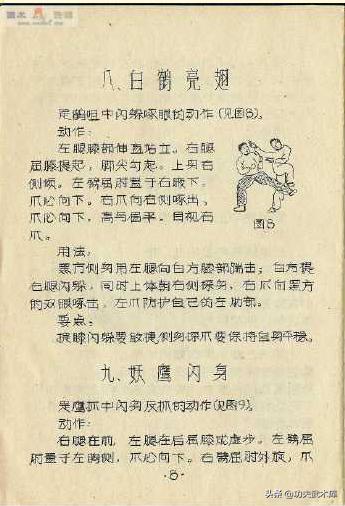 八、白鹤亮翅
是鹤咀中闪躲啄眼的动作(见图8)。
动作:
左腿膝部伸直站立。右腿
屈膝提起,脚尖勾起。上身右
侧倾。左臂屈肘置于右腋下,
爪心向下。右爪向右侧啄出,
爪心向下,高与眉平。目视右
爪。
图8
用法:
黑方侧身用左腿向白方膝部踹击;白方提
右腿闪躲,同时上体朝右侧探身,右爪向黑方
的双眼啄击,左爪防护自己的左肋部。
要点:
提膝闪躲要敏捷侧身探爪要保持自身平稳。
九、妖鹰闪身
是鹰抓中闪身反抓的动作(见图9)。
动作:
右腿在前,左腿在后屈膝成虚步。左臂屈
肘置于左胸侧,爪心向下。右臂屈肘外旋,爪
·8·
头条@功夫武术库